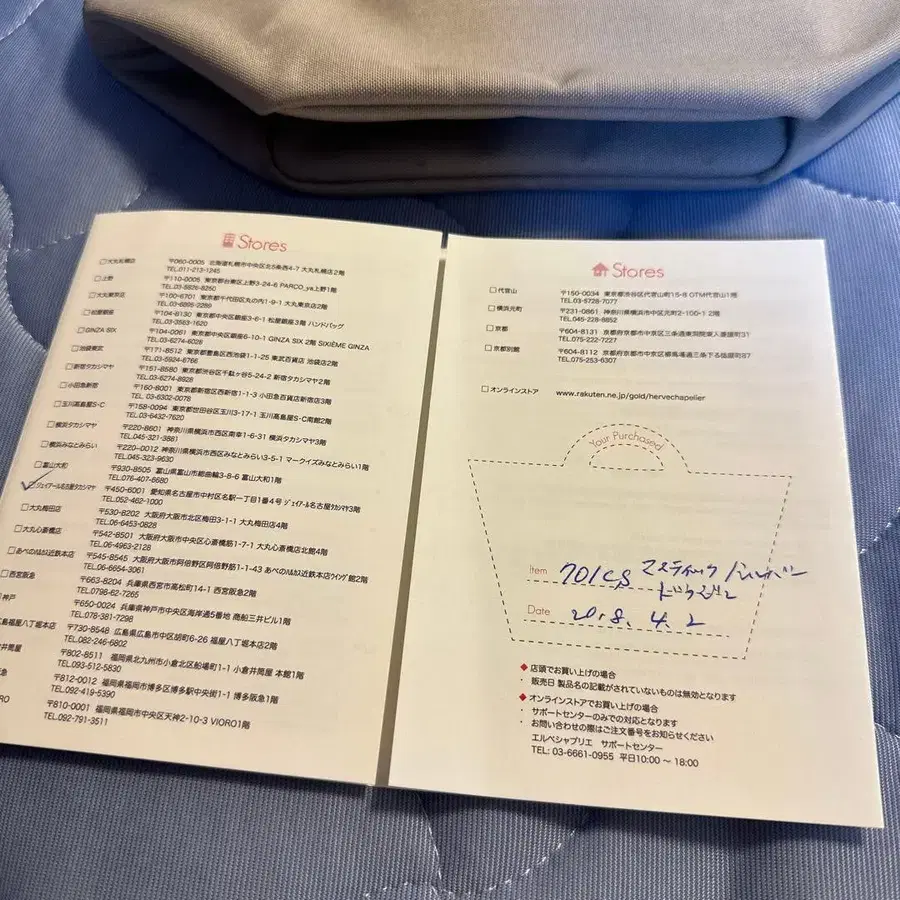 Stores
大丸札幌店 〒060-0005 北海道札幌市中央区北5条西4-7 大丸札幌店2階
TEL.011-213-1245
上野 〒110-0005 東京都台東区上野3-24-6 PARCO_ya上野1階
TEL.03-5826-8250
大丸東京店 〒100-6701 東京都千代田区丸の内1-9-1 大丸東京店2階
TEL.03-6895-2286
松屋銀座 〒104-8130 東京都中央区銀座3-6-1 松屋銀座3階 ハンドバッグ
TEL.03-3563-1620
GINZA SIX 〒104-0061 東京都中央区銀座6-10-1 GINZA SIX 2階 SIXIÈME GINZA
TEL.03-6274-6026
池袋東武 〒171-8512 東京都豊島区西池袋1-1-25 東武百貨店 池袋店2階
TEL.03-5924-6766
新宿タカシマヤ 〒151-8580 東京都渋谷区千駄ヶ谷5-24-2 新宿タカシマヤ2階
TEL.03-6274-8928
小田急新宿 〒160-8001 東京都新宿区西新宿1-1-3 小田急百貨店新宿店3階
TEL.03-6302-0078
玉川高島屋S・C 〒158-0094 東京都世田谷区玉川3-17-1 玉川高島屋S・C南館2階
TEL.03-6432-7620
横浜タカシマヤ 〒220-8601 神奈川県横浜市西区南幸1-6-31 横浜タカシマヤ3階
TEL.045-321-3881
横浜みなとみらい 〒220-0012 神奈川県横浜市西区みなとみらい3-5-1 マークイズみなとみらい1階
TEL.045-323-9630
富山大和 〒930-8505 富山県富山市総曲輪3-8-6 富山大和1階
TEL.076-407-6680
ジェイアール名古屋タカシマヤ 〒450-6001 愛知県名古屋市中村区名駅一丁目1番4号 ジェイアール名古屋タカシマヤ3階
TEL.052-462-1000
大丸梅田店 〒530-8202 大阪府大阪市北区梅田3-1-1 大丸梅田店4階
TEL.06-6453-0828
大丸心斎橋店 〒542-8501 大阪府大阪市中央区心斎橋筋1-7-1 大丸心斎橋店北館4階
TEL.06-4963-2128
あべのハルカス近鉄本店 〒545-8545 大阪府大阪市阿倍野区阿倍野筋1-1-43 あべのハルカス近鉄本店ウイング館2階
TEL.06-6654-3061
西宮阪急 〒663-8204 兵庫県西宮市高松町14-1 西宮阪急2階
TEL.0798-62-7265
神戸 〒650-0024 兵庫県神戸市中央区海岸通5番地 商船三井ビル1階
TEL.078-381-7298
福屋八丁堀本店 〒730-8548 広島県広島市中区胡町6-26 福屋八丁堀本店2階
TEL.082-246-6802
井筒屋 〒802-8511 福岡県北九州市小倉北区船場町1-1 小倉井筒屋 本館1階
TEL.093-512-5830
急 〒812-0012 福岡県福岡市博多区博多駅中央街1-1 博多阪急1階
TEL.092-419-5390
RO 〒810-0001 福岡県福岡市中央区天神2-10-3 VIORO1階
TEL.092-791-3511
Stores
代官山 〒150-0034 東京都渋谷区代官山町15-8 OTM代官山1階
TEL.03-5728-7077
横浜元町 〒231-0861 神奈川県横浜市中区元町2-100-1 2階
TEL.045-228-8652
京都 〒604-8131 京都府京都市中京区三条通東洞院東入菱屋町31
TEL.075-222-7227
京都別館 〒604-8112 京都府京都市中京区柳馬場通三条下る槌屋町87
TEL.075-253-6307
オンラインストア www.rakuten.ne.jp/gold/hervechapelier
Your Purchased
Item 701CS マスティック
Date 2018.4.2
◆ 店頭でお買い上げの場合
・ 販売日 製品名の記載がされていないものは無効となります
◆ オンラインストアでお買い上げの場合
・ サポートセンターのみでの対応となります
・ お問い合わせの際はご注文番号をお知らせください
エルベシャプリエ サポートセンター
TEL: 03-6661-0955 平日10:00 ～ 18:00